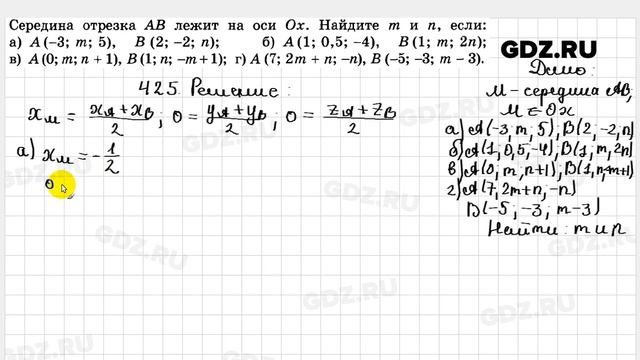 Середина отрезка AB лежит на оси Ox. Найдите m и n, если:
а) A (–3; m; 5), B (2; –2; n); б) A (1; 0,5; –4), B (1; m; 2n);
в) A (0; m; n + 1), B (1; n; –m + 1); г) A (7; 2m + n; –n), B (–5; –3; m – 3).
GDZ.RU
425. Решение:
xм = (xA + xB)/2; 0 = (yA + yB)/2; 0 = (zA + zB)/2
а) xм = –1/2
0
Дано:
M – середина AB,
M ∈ Ox
а) A(–3, m, 5), B(2, –2, n)
б) A(1, 0,5, –4), B(1, m, 2n)
в) A(0, m, n+1), B(1, n, –m+1)
г) A(7, 2m+n, –n)
B(–5; –3; m–3)
Найти: m и n